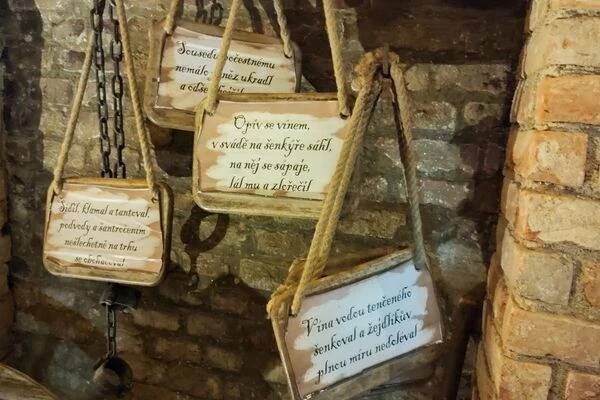 Sousedu počestnému
nemálo peněz ukradl
a odse
Opiv se vínem,
v svádě na šenkýře sáhl,
na něj se sápaje,
lál mu a zlořečil
Šidil, klamal a tantoval,
podvody a šantročením
nešlechetně na trhu
se obohacoval
Vína vodou tenčeného
šenkoval a žejdlíkův
plnou míru nedoléval